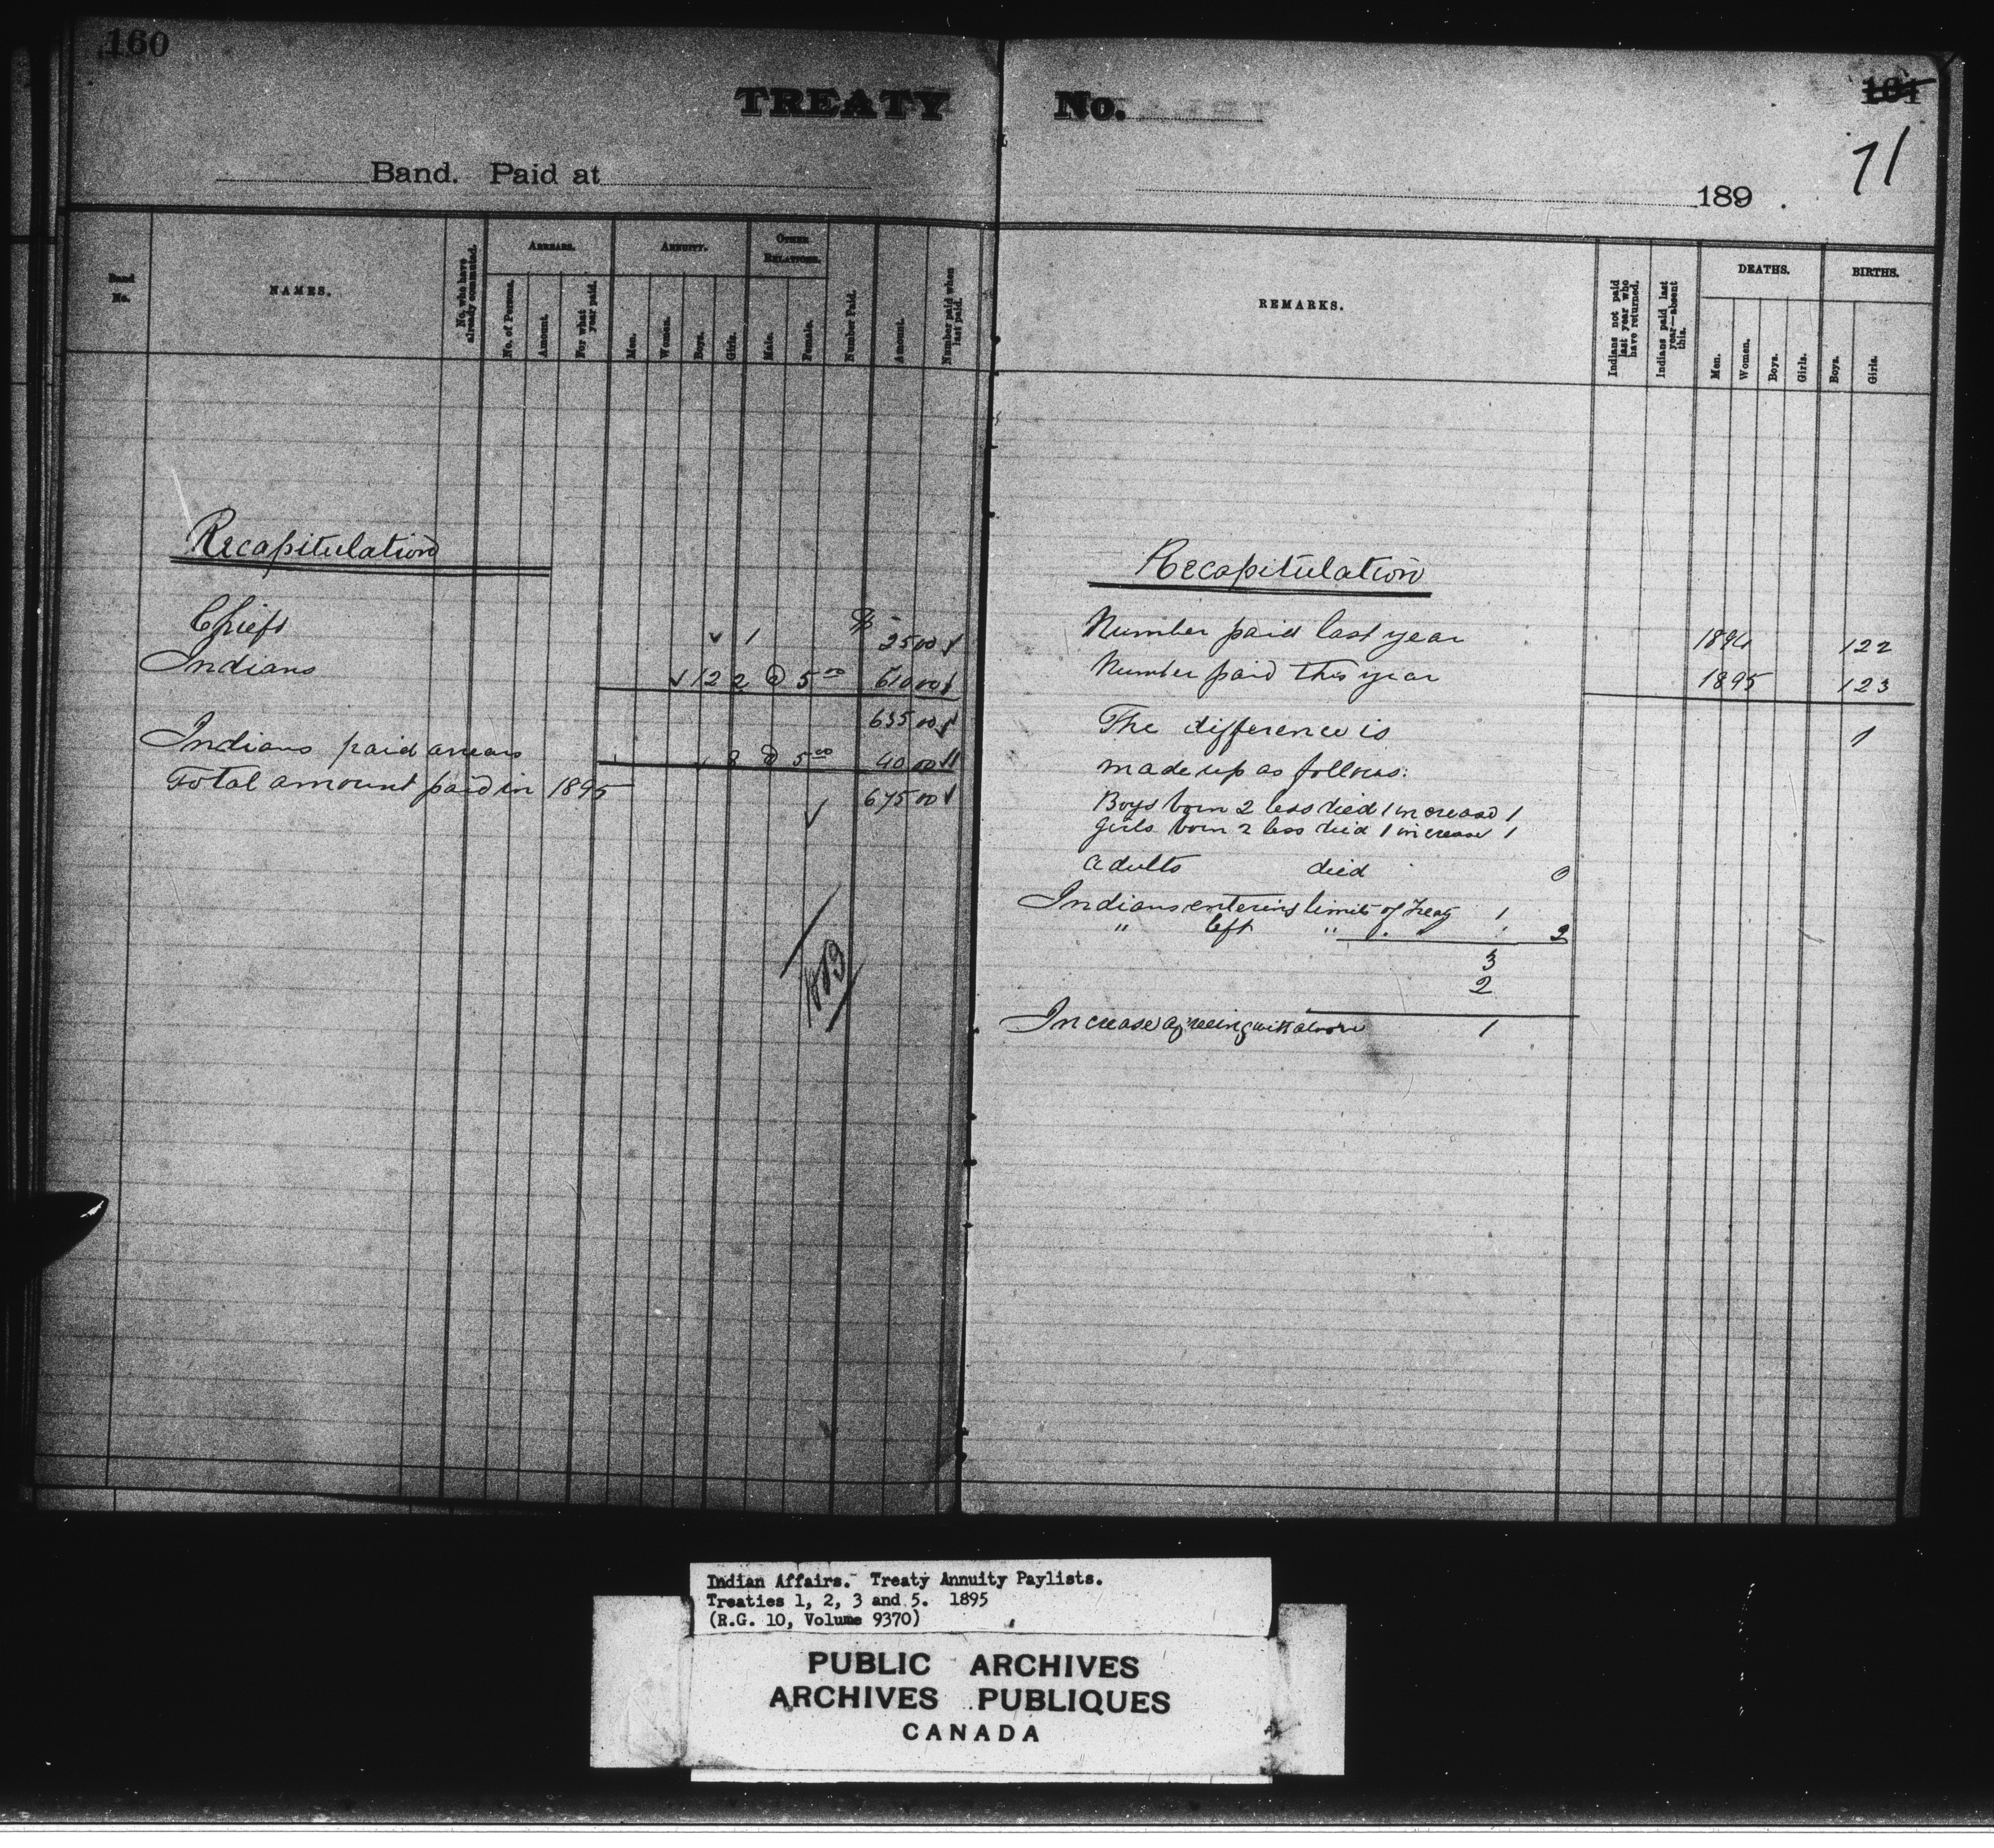 160
TREATY No.
161
71
Band. Paid at
189 .
Band No.
NAMES.
No. who have already commuted.
ARREARS.
No. of Persons.
Amount.
For what year paid.
ANNUITY.
Men.
Women.
Boys.
Girls.
OTHER RELATIONS.
Male.
Female.
Number Paid.
Amount.
Number paid when last paid.
REMARKS.
Indians not paid last year who have returned.
Indians paid last year—absent this.
DEATHS.
Men.
Women.
Boys.
Girls.
BIRTHS.
Boys.
Girls.
Recapitulation
Chiefs ✓ 1 $ 25 00 ✓
Indians ✓ 122 @ 5 00 610 00 ✓
635 00 ✓
Indians paid arrears ✓ 8 @ 5 00 40 00 ✓
Total amount paid in 1895 675 00 ✓
✓
Recapitulation
Number paid last year 1894 122
Number paid this year 1895 123
The difference is 1
made up as follows:
Boys born 2 less died 1 increase 1
Girls born 2 less died 1 increase 1
Adults died 0
Indians entering limits of Treaty 1
" left " 2
3
2
Increase agreeing with above 1
Indian Affairs. Treaty Annuity Paylists.
Treaties 1, 2, 3 and 5. 1895
(R.G. 10, Volume 9370)
PUBLIC ARCHIVES
ARCHIVES PUBLIQUES
CANADA